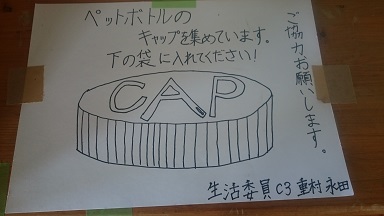 ペットボトルの
キャップを集めています。
下の袋に入れてください!
ご協力お願いします。
CAP
生活委員 C3 重村 永田